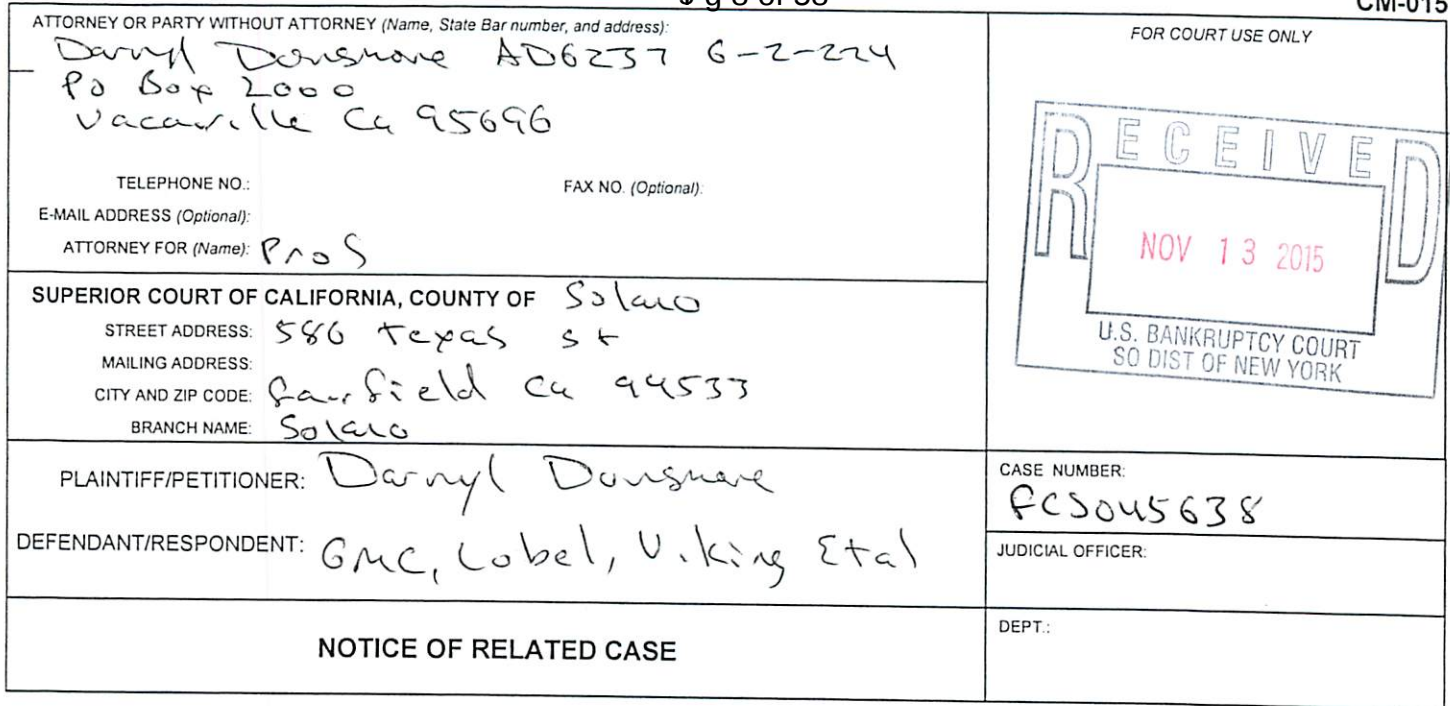 g 8 of 38
CM-015
ATTORNEY OR PARTY WITHOUT ATTORNEY (Name, State Bar number, and address):
Darryl Dunsmore AD6237 6-2-224
Po Box 2000
Vacaville Ca 95696
TELEPHONE NO.:
FAX NO. (Optional):
E-MAIL ADDRESS (Optional):
ATTORNEY FOR (Name): Pro S
FOR COURT USE ONLY
RECEIVED
NOV 13 2015
U.S. BANKRUPTCY COURT
SO DIST OF NEW YORK
SUPERIOR COURT OF CALIFORNIA, COUNTY OF Solano
STREET ADDRESS: 586 Texas st
MAILING ADDRESS:
CITY AND ZIP CODE: Fairfield Ca 94533
BRANCH NAME: Solano
PLAINTIFF/PETITIONER: Darryl Dunsmore
DEFENDANT/RESPONDENT: GMC, Lobel, Viking Etal
CASE NUMBER:
FCS045638
JUDICIAL OFFICER:
NOTICE OF RELATED CASE
DEPT.: